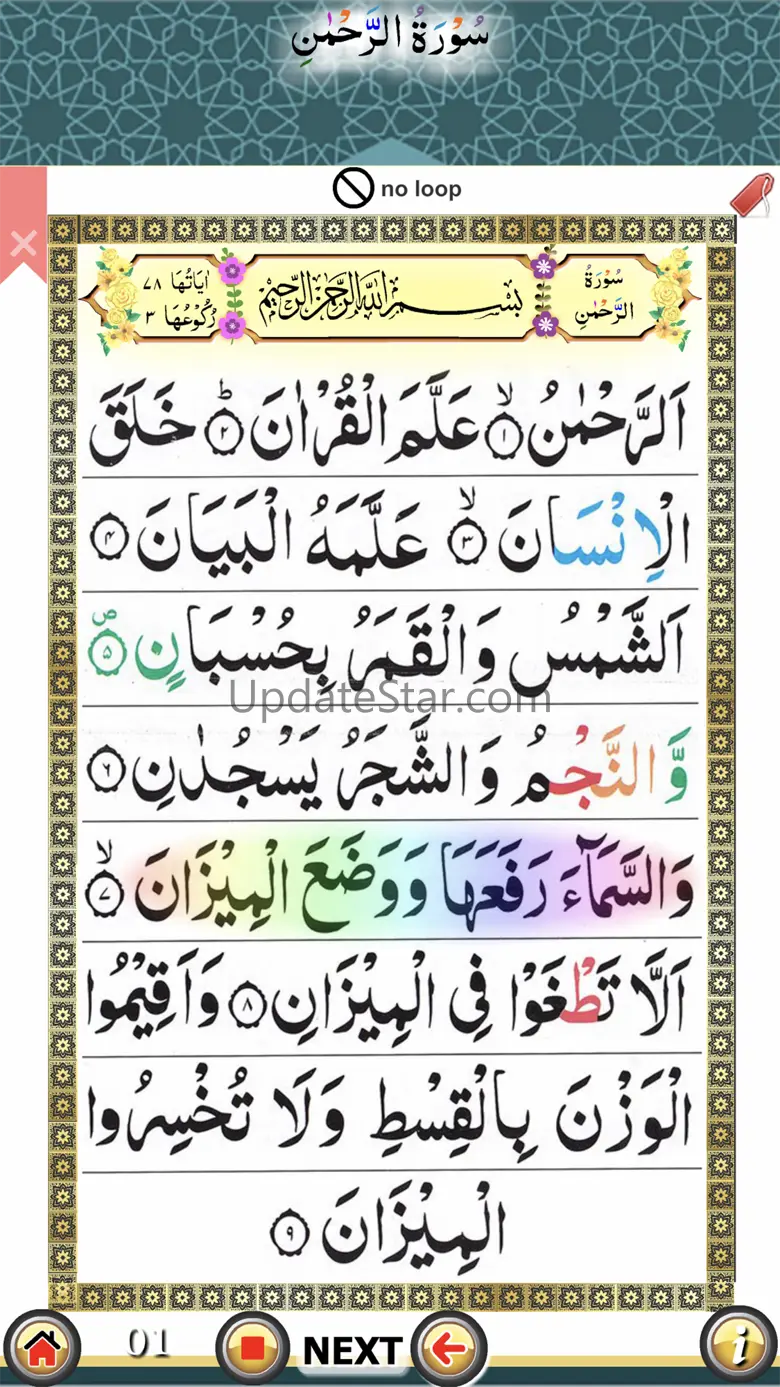 سُوْرَةُ الرَّحْمٰنِ
no loop
سُوْرَةُ الرَّحْمٰنِ
بِسْمِ اللهِ الرَّحْمٰنِ الرَّحِيْمِ
اٰيَاتُهَا ٧٨
رُكُوْعُهَا ٣
اَلرَّحْمٰنُ ۙ﴿١﴾ عَلَّمَ الْقُرْاٰنَ ؕ﴿٢﴾ خَلَقَ
الْاِنْسَانَ ۙ﴿٣﴾ عَلَّمَهُ الْبَيَانَ ﴿٤﴾
اَلشَّمْسُ وَالْقَمَرُ بِحُسْبَانٍ ۪﴿٥﴾
UpdateStar.com
وَّالنَّجْمُ وَالشَّجَرُ يَسْجُدٰنِ ﴿٦﴾
وَالسَّمَآءَ رَفَعَهَا وَوَضَعَ الْمِيْزَانَ ۙ﴿٧﴾
اَلَّا تَطْغَوْا فِى الْمِيْزَانِ ﴿٨﴾ وَاَقِيْمُوا
الْوَزْنَ بِالْقِسْطِ وَلَا تُخْسِرُوا
الْمِيْزَانَ ﴿٩﴾
01
NEXT
i